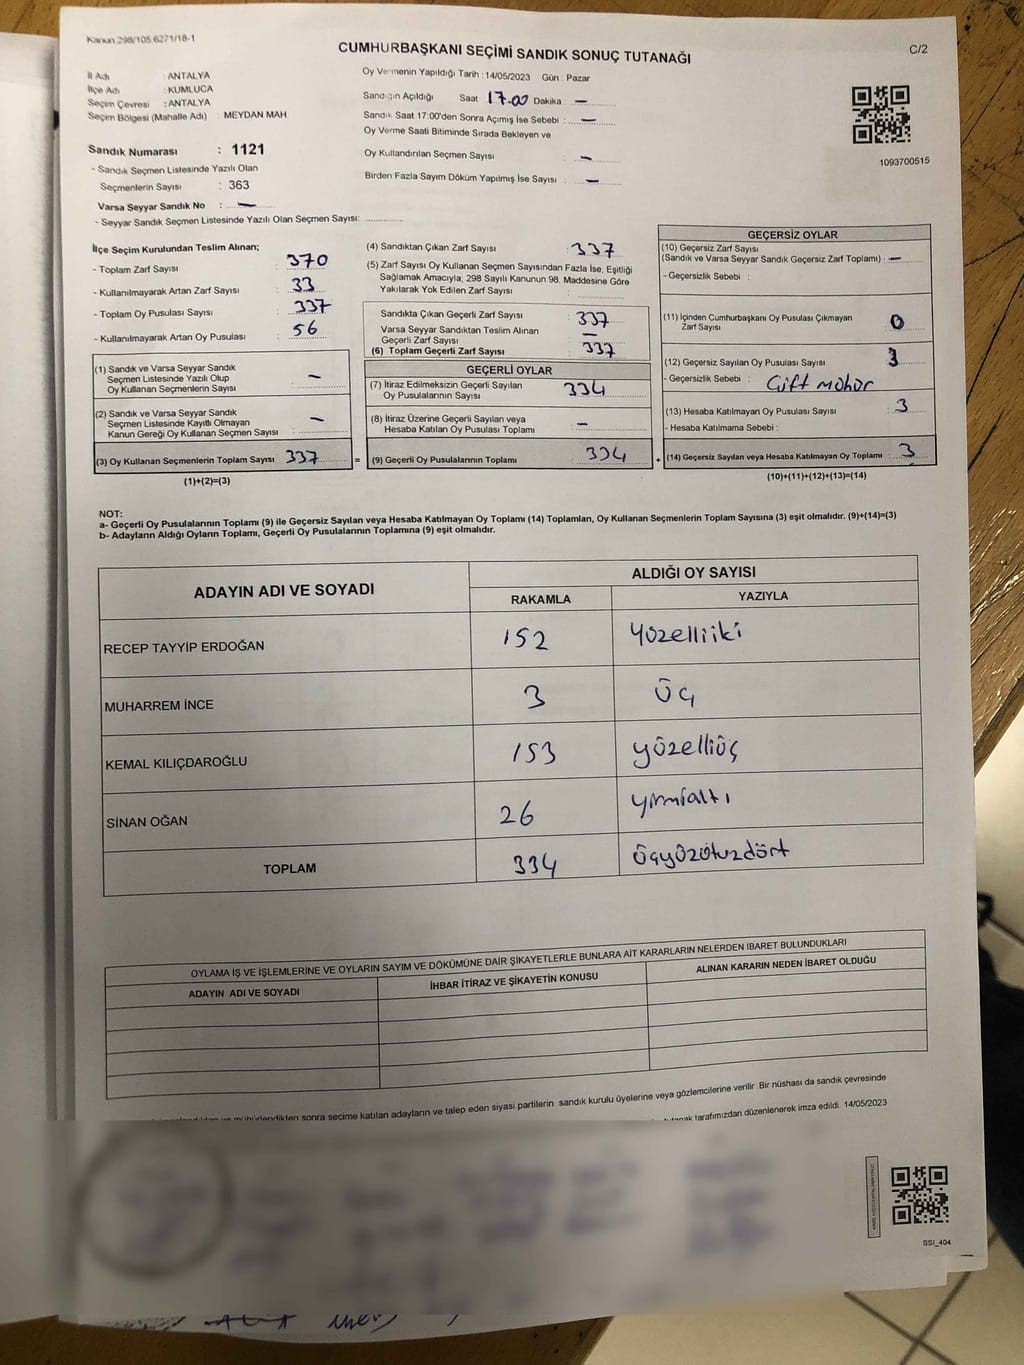 Kanun 298/105,6271/18-1
CUMHURBAŞKANI SEÇİMİ SANDIK SONUÇ TUTANAĞI
C/2
İl Adı : ANTALYA
İlçe Adı : KUMLUCA
Seçim Çevresi : ANTALYA
Seçim Bölgesi (Mahalle Adı) : MEYDAN MAH
Sandık Numarası : 1121
- Sandık Seçmen Listesinde Yazılı Olan
Seçmenlerin Sayısı : 363
Varsa Seyyar Sandık No : —
- Seyyar Sandık Seçmen Listesinde Yazılı Olan Seçmen Sayısı:
Oy Vermenin Yapıldığı Tarih :14/05/2023 Gün : Pazar
Sandığın Açıldığı Saat 17.00 Dakika : —
Sandık Saat 17:00'den Sonra Açımış İse Sebebi : —
Oy Verme Saati Bitiminde Sırada Bekleyen ve
Oy Kullandırılan Seçmen Sayısı : —
Birden Fazla Sayım Döküm Yapılmış İse Sayısı : —
1093700515
İlçe Seçim Kurulundan Teslim Alınan;
- Toplam Zarf Sayısı : 370
- Kullanılmayarak Artan Zarf Sayısı : 33
- Toplam Oy Pusulası Sayısı : 337
- Kullanılmayarak Artan Oy Pusulası : 56
(1) Sandık ve Varsa Seyyar Sandık
Seçmen Listesinde Yazılı Olup
Oy Kullanan Seçmenlerin Sayısı : —
(2) Sandık ve Varsa Seyyar Sandık
Seçmen Listesinde Kayıtlı Olmayan
Kanun Gereği Oy Kullanan Seçmen Sayısı : —
(3) Oy Kullanan Seçmenlerin Toplam Sayısı : 337
(1)+(2)=(3)
=
(4) Sandıktan Çıkan Zarf Sayısı : 337
(5) Zarf Sayısı Oy Kullanan Seçmen Sayısından Fazla İse, Eşitliği
Sağlamak Amacıyla, 298 Sayılı Kanunun 98. Maddesine Göre
Yakılarak Yok Edilen Zarf Sayısı :
Sandıkta Çıkan Geçerli Zarf Sayısı : 337
Varsa Seyyar Sandıktan Teslim Alınan
Geçerli Zarf Sayısı : —
(6) Toplam Geçerli Zarf Sayısı : 337
GEÇERLİ OYLAR
(7) İtiraz Edilmeksizin Geçerli Sayılan
Oy Pusulalarının Sayısı : 334
(8) İtiraz Üzerine Geçerli Sayılan veya
Hesaba Katılan Oy Pusulası Toplamı : —
(9) Geçerli Oy Pusulalarının Toplamı : 334
+
GEÇERSİZ OYLAR
(10) Geçersiz Zarf Sayısı
(Sandık ve Varsa Seyyar Sandık Geçersiz Zarf Toplamı) : —
- Geçersizlik Sebebi :
(11) İçinden Cumhurbaşkanı Oy Pusulası Çıkmayan
Zarf Sayısı : 0
(12) Geçersiz Sayılan Oy Pusulası Sayısı : 3
- Geçersizlik Sebebi : Çift mühür
(13) Hesaba Katılmayan Oy Pusulası Sayısı : 3
- Hesaba Katılmama Sebebi :
(14) Geçersiz Sayılan veya Hesaba Katılmayan Oy Toplamı : 3
(10)+(11)+(12)+(13)=(14)
NOT:
a- Geçerli Oy Pusulalarının Toplamı (9) ile Geçersiz Sayılan veya Hesaba Katılmayan Oy Toplamı (14) Toplamları, Oy Kullanan Seçmenlerin Toplam Sayısına (3) eşit olmalıdır. (9)+(14)=(3)
b- Adayların Aldığı Oyların Toplamı, Geçerli Oy Pusulalarının Toplamına (9) eşit olmalıdır.
ADAYIN ADI VE SOYADI
ALDIĞI OY SAYISI
RAKAMLA YAZIYLA
RECEP TAYYİP ERDOĞAN 152 Yüzelliiki
MUHARREM İNCE 3 Üç
KEMAL KILIÇDAROĞLU 153 yüzelliüç
SİNAN OĞAN 26 yirmialtı
TOPLAM 334 üçyüzotuzdört
OYLAMA İŞ VE İŞLEMLERİNE VE OYLARIN SAYIM VE DÖKÜMÜNE DAİR ŞİKAYETLERLE BUNLARA AİT KARARLARIN NELERDEN İBARET BULUNDUKLARI
ADAYIN ADI VE SOYADI İHBAR İTİRAZ VE ŞİKAYETİN KONUSU ALINAN KARARIN NEDEN İBARET OLDUĞU
mühürlendikten sonra seçime katılan adayların ve talep eden siyasi partilerin sandık kurulu üyelerine veya gözlemcilerine verilir. Bir nüshası da sandık çevresinde
tutanak tarafımızdan düzenlenerek imza edildi. 14/05/2023
SSI_404